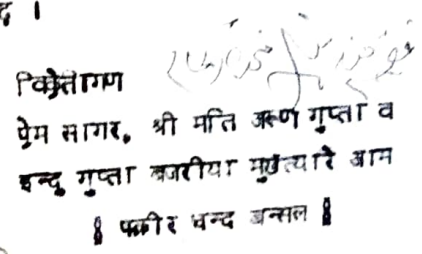 द ।
विक्रेतागण
प्रेम सागर, श्री मति अरूण गुप्ता व
इन्दु गुप्ता बजरीया मुखत्यारे आम
॥ फकीर चन्द बन्सल ॥